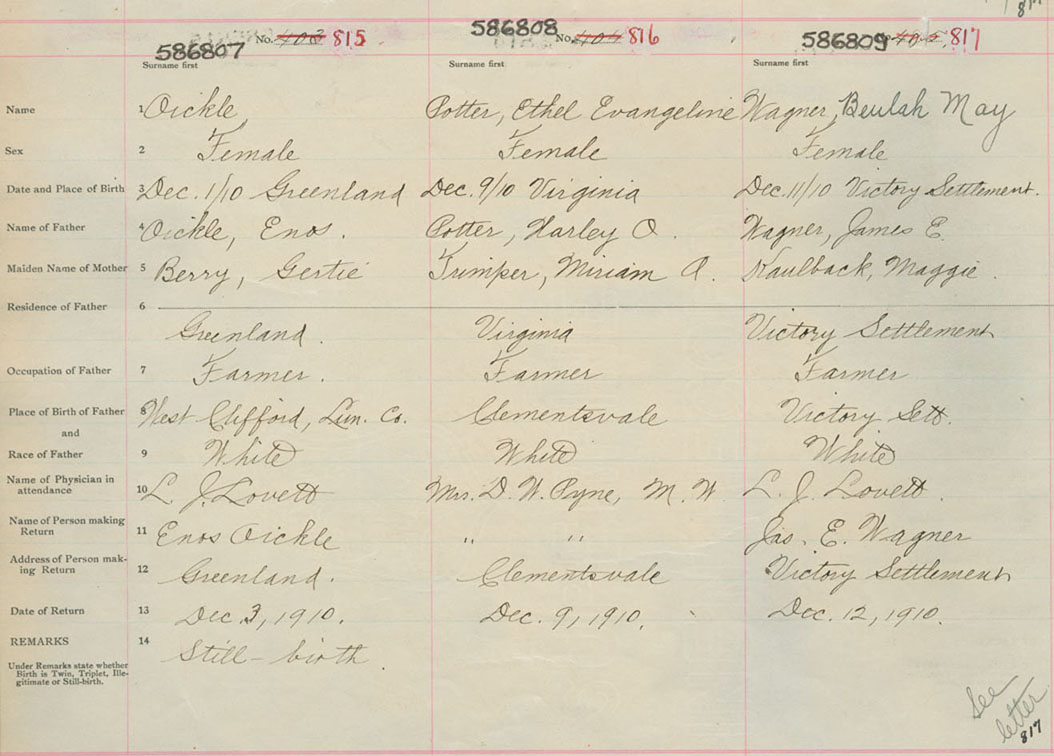 817
586807 No. 403 815 586808 No. 404 816 586809 No. 405 817
Surname first Surname first Surname first
Name 1 Oickle, Potter, Ethel Evangeline Wagner, Beulah May
Sex 2 Female Female Female
Date and Place of Birth 3 Dec. 1/10 Greenland Dec. 9/10 Virginia Dec. 11/10 Victory Settlement.
Name of Father 4 Oickle, Enos. Potter, Harley O. Wagner, James E.
Maiden Name of Mother 5 Berry, Gertie Trimper, Miriam A. Kaulback, Maggie.
Residence of Father 6
Greenland. Virginia Victory Settlement
Occupation of Father 7 Farmer. Farmer Farmer
Place of Birth of Father 8 West Clifford, Lun. Co. Clementsvale Victory Sett.
and
Race of Father 9 White White White
Name of Physician in
attendance 10 L. J. Lovett Mrs. D. W. Pyne, M. W. L. J. Lovett.
Name of Person making
Return 11 Enos Oickle " " Jas. E. Wagner
Address of Person mak-
ing Return 12 Greenland. Clementsvale Victory Settlement
Date of Return 13 Dec. 3, 1910. Dec. 9, 1910. Dec. 12, 1910.
REMARKS 14 Still-birth.
Under Remarks state whether
Birth is Twin, Triplet, Ille-
gitimate or Still-birth.
See
letter
817